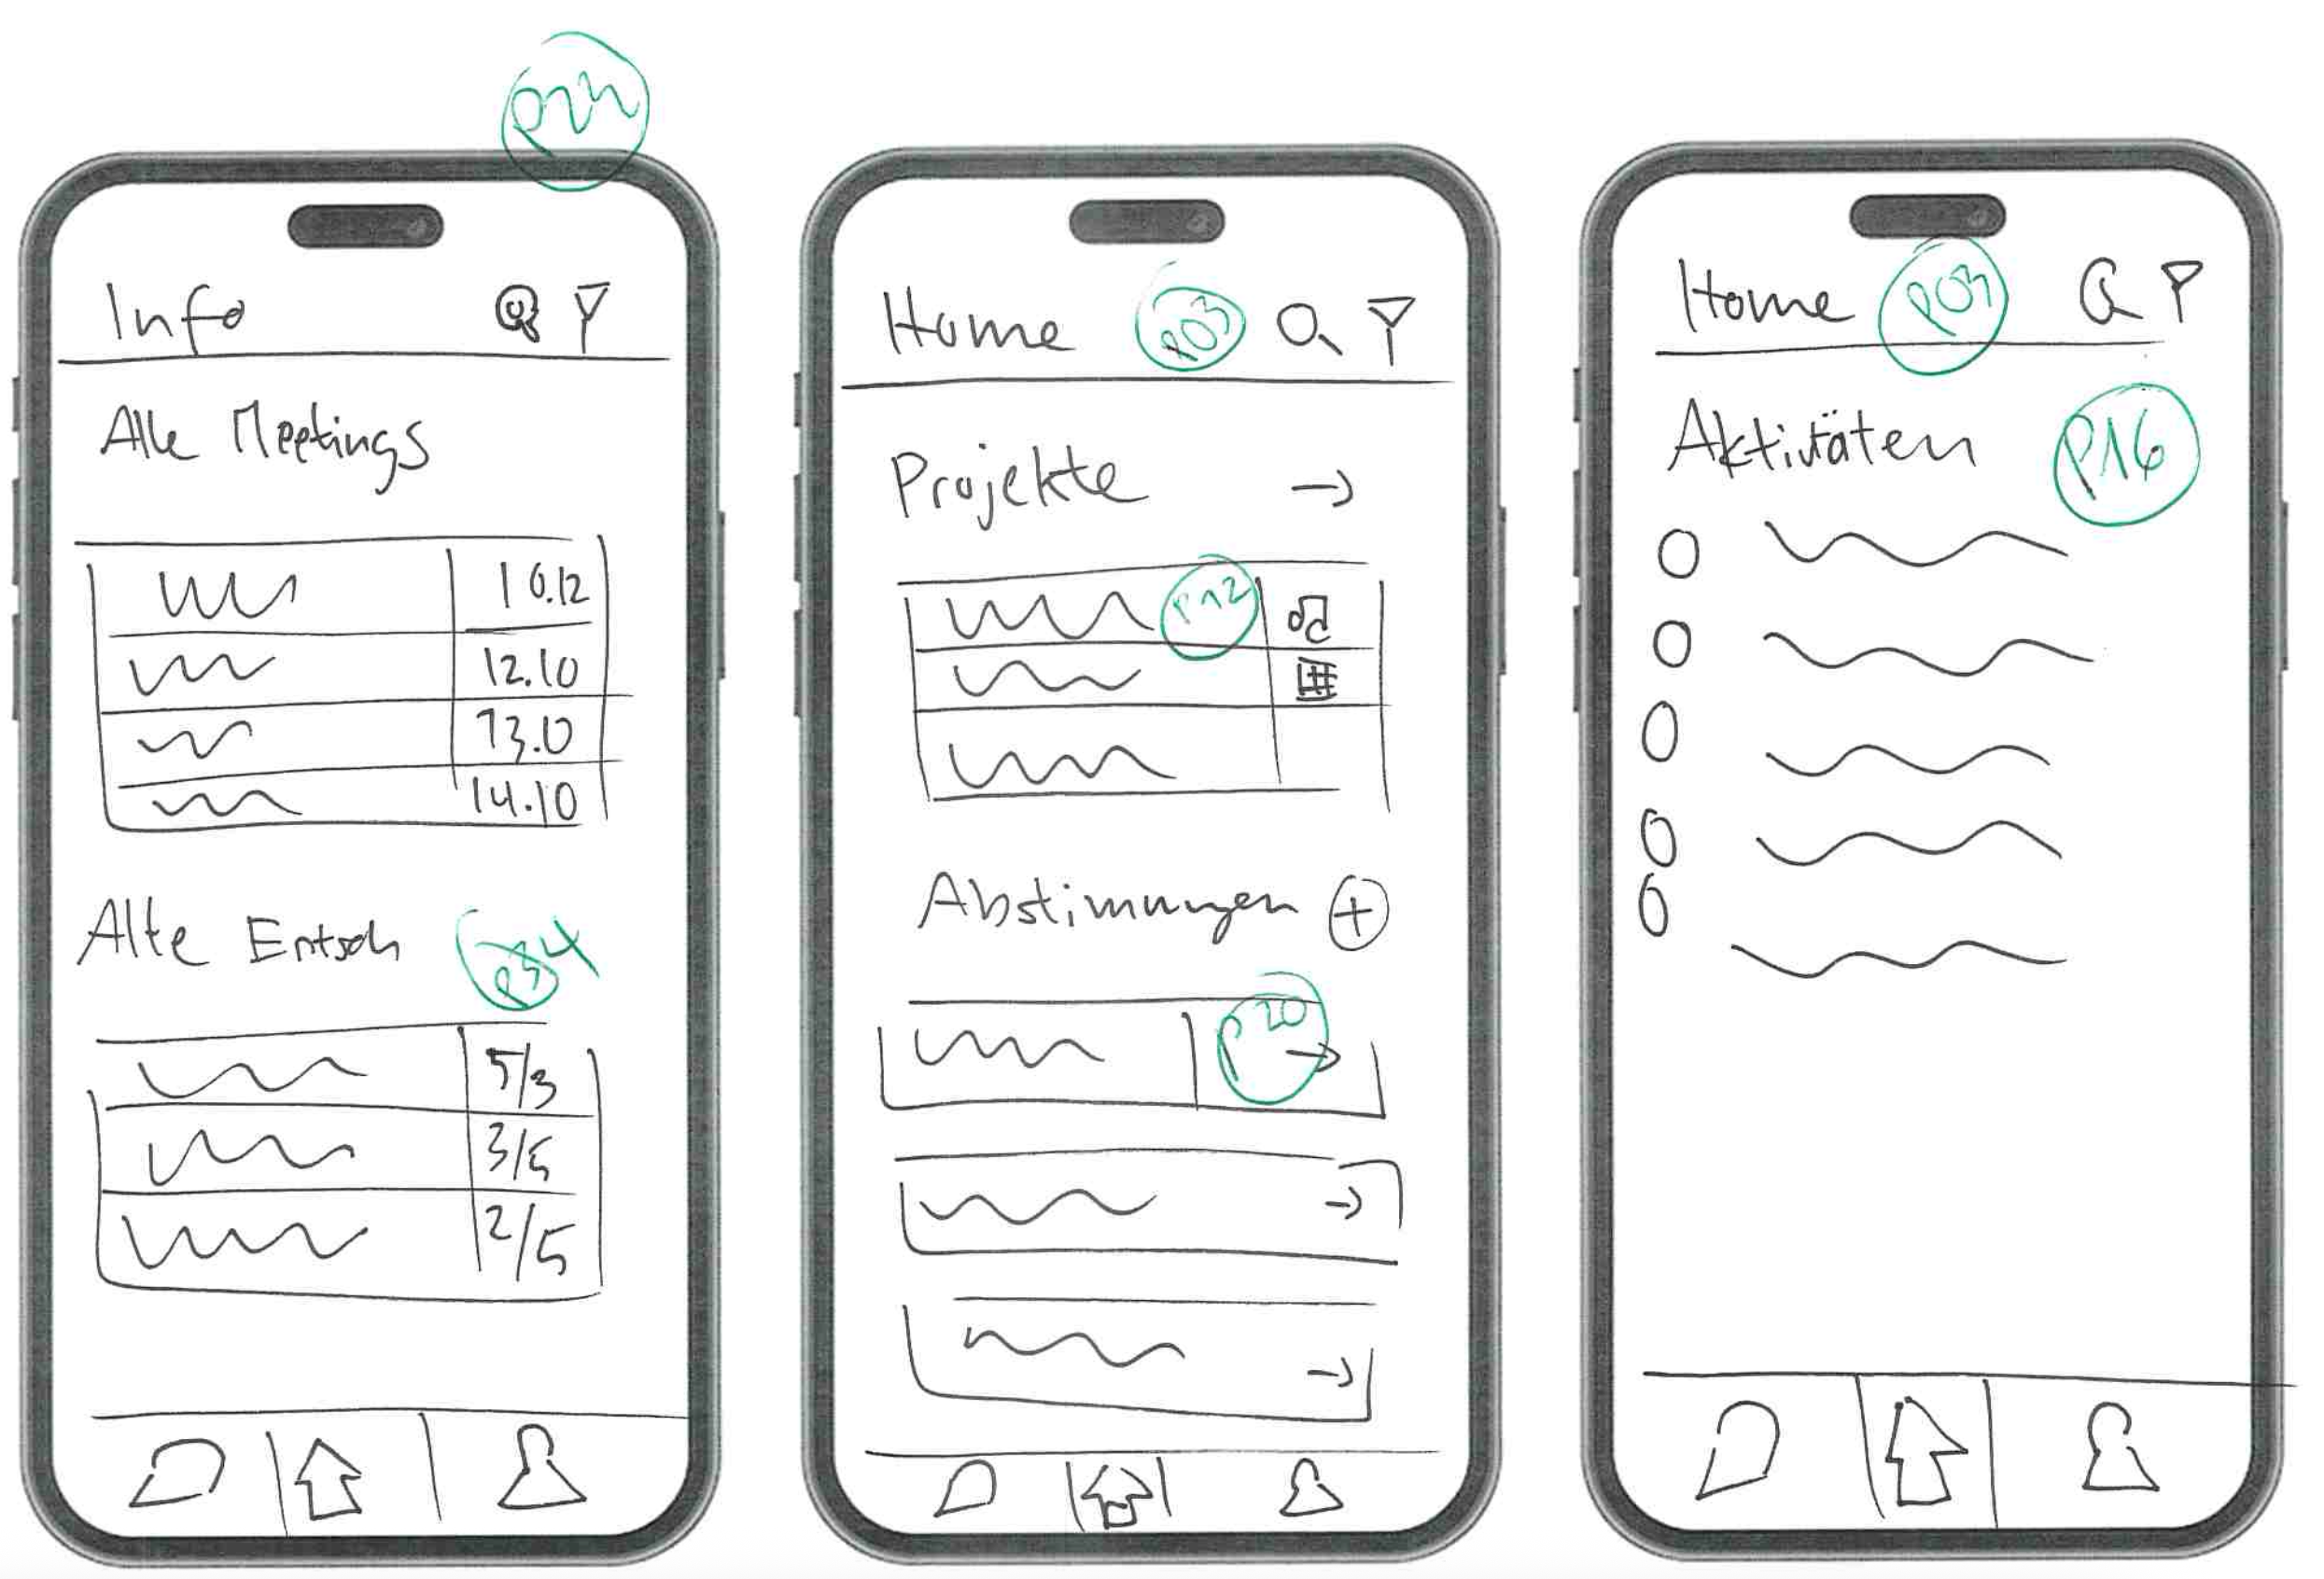 Info
Alle Meetings
10.12
12.10
13.10
14.10
Alte Entsch
5/3
3/5
2/5
Home P03
Projekte →
P12
Abstimmungen +
P20 →
→
→
Home P03
Aktivitäten P16